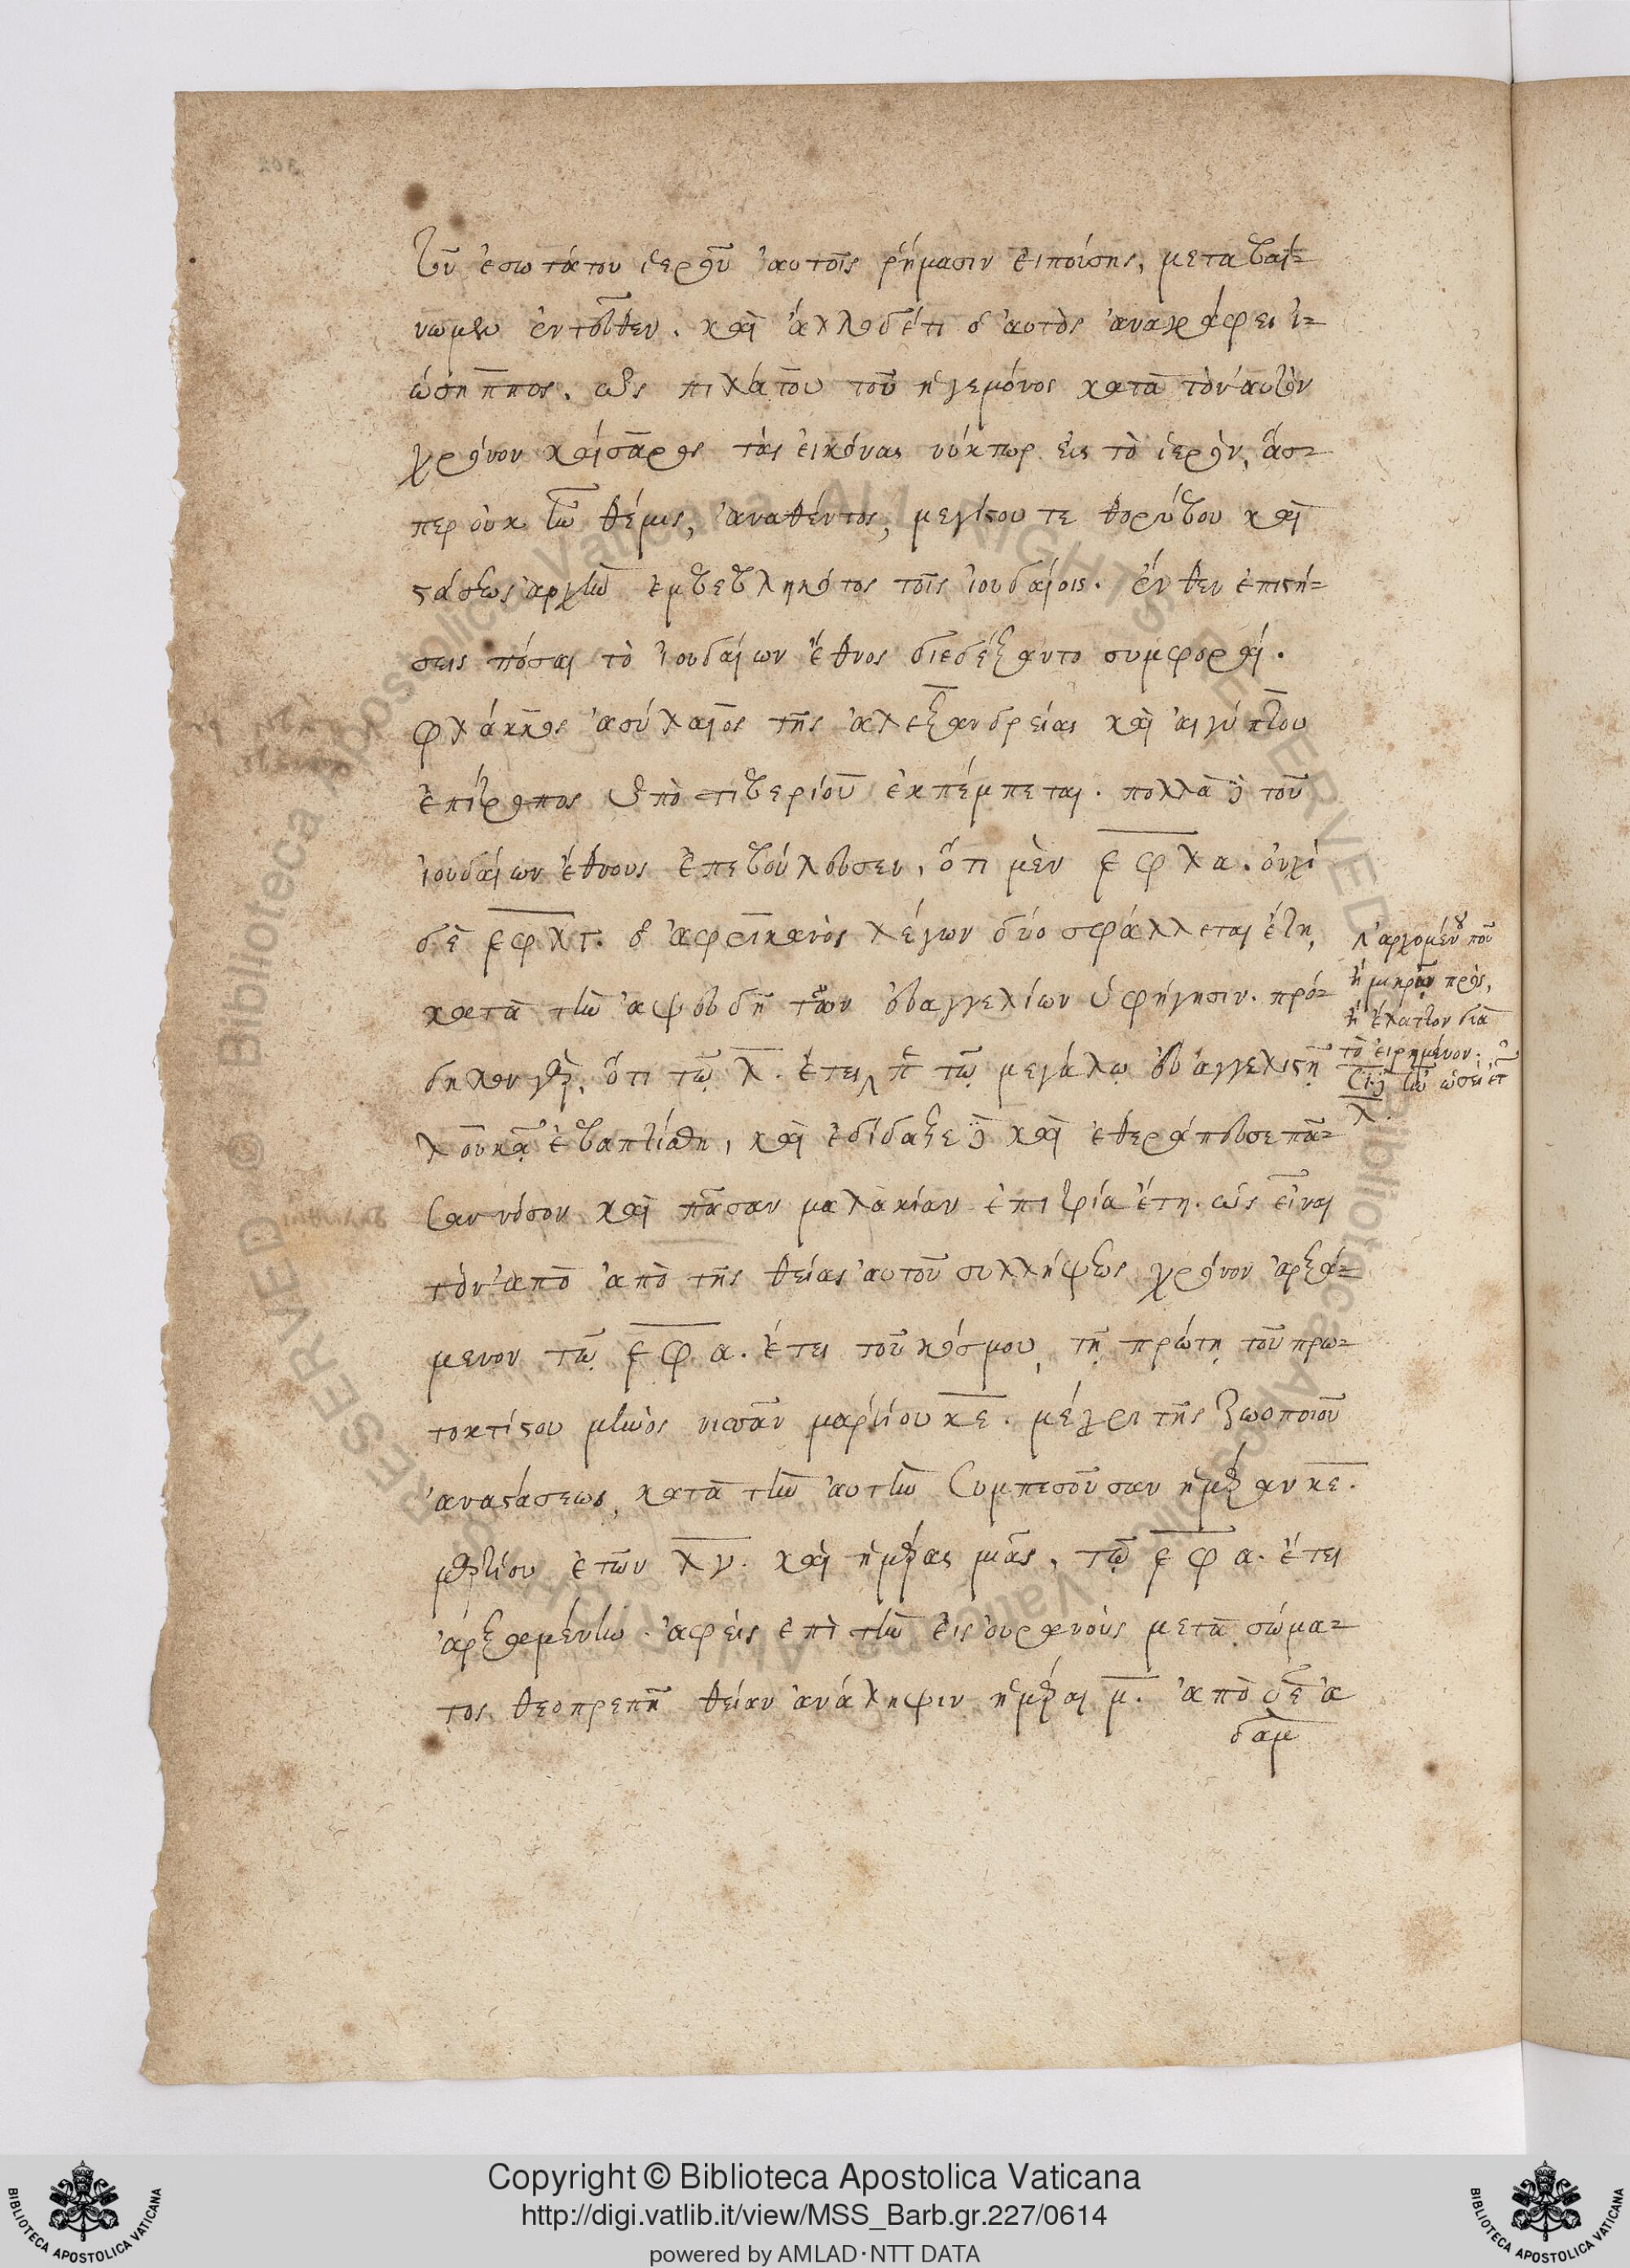 τοῦ ἐσωτάτου ἱεροῦ αὐτοῖς ῥήμασιν εἰπούσης, μεταβαί=
νωμεν ἐντεῦθεν. καὶ ἄλλο δέ τι ὁ αὐτὸς ἀναγράφει ἰ=
ώσηππος. ὡς πιλάτου τοῦ ἡγεμόνος κατὰ τὸν αὐτὸν
χρόνον καίσαρος τὰς εἰκόνας νύκτωρ εἰς τὸ ἱερὸν, ἅσ=
περ οὐκ ἦν θέμις, ἀναθέντος, μεγίστου τε θορύβου καὶ
στάσεως ἀρχὴν ἐμβεβληκότος τοῖς ἰουδαίοις. ἔνθεν ἐπιστή=
σεις πόσαι τὸ ἰουδαίων ἔθνος διεδέξαντο συμφοραί.
φλάκκος ἀσύλαιος τῆς ἀλεξανδρείας καὶ αἰγύπτου
ἐπίτροπος ὑπὸ τιβερίου ἐκπέμπεται. πολλὰ δὲ τοῦ
ἰουδαίων ἔθνους ἐπεβούλευσεν, ὅτι μὲν ͵εφλα. οὐχὶ
δὲ ͵εφλτ. ὁ ἀφρικανὸς λέγων δύο σφάλλεται ἔτη,
κατὰ τὴν ἀψευδῆ τῶν εὐαγγελίων ὑφήγησιν. πρό=
δηλον γὰρ, ὅτι τῷ λ. ἔτει τῷ μεγάλῳ εὐαγγελιστῇ
λουκᾷ ἐβαπτίσθη, καὶ ἐδίδαξε δὲ καὶ ἐθεράπευσε πᾶ=
σαν νόσον καὶ πᾶσαν μαλακίαν ἐπὶ τρία ἔτη. ὡς εἶναι
τὸν ἀπὸ ἀπὸ τῆς θείας αὐτοῦ συλλήψεως χρόνον ἀρξά=
μενον τῷ ͵εφα. ἔτει τοῦ κόσμου, τῇ πρώτῃ τοῦ πρω=
τοκτίστου μηνὸς νισσὰν μαρτίου κε. μέχρι τῆς ζωοποιοῦ
ἀναστάσεως, κατὰ τὴν αὐτὴν συμπεσοῦσαν ἡμέραν κε.
μαρτίου ἐτῶν λγ. καὶ ἡμέρας μιᾶς, τῷ ͵εφα. ἔτει
ἀρξαμένην. ἀφ' εἰς ἐπὶ τὴν εἰς οὐρανοὺς μετὰ σώμα=
τος θεοπρεπῆ θείαν ἀνάληψιν ἡμέραι μ. ἀπὸ δὲ ἀ
δαμ
ἀρχομένου που
ἢ μικρὸν πρὸς,
ἢ ἔλαττον διὰ
τὸ εἰρημένον.
ἦν ὡσεὶ ἐτ
λ.